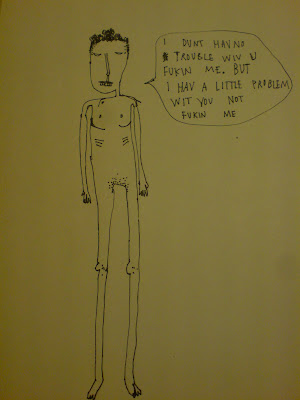 I DUNT HAV NO
TROUBLE WIV U
FUKIN ME. BUT
I HAV A LITTLE PROBLEM
WIT YOU NOT
FUKIN ME